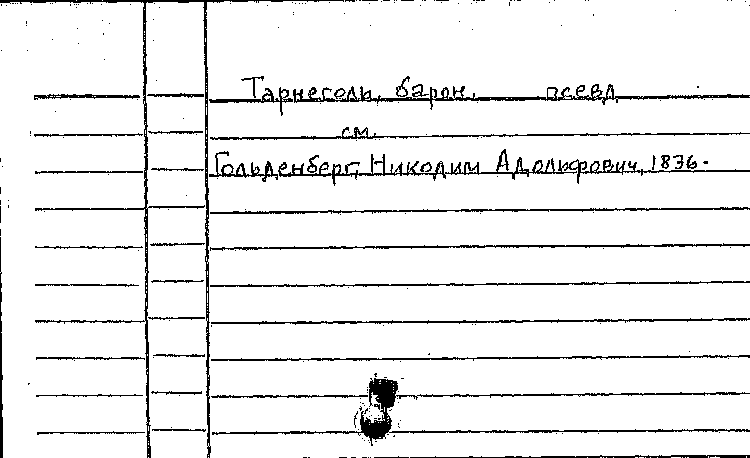 Тарнеголь, барон, псевд.
см.
Гольденберг, Никодим Адольфович, 1836-